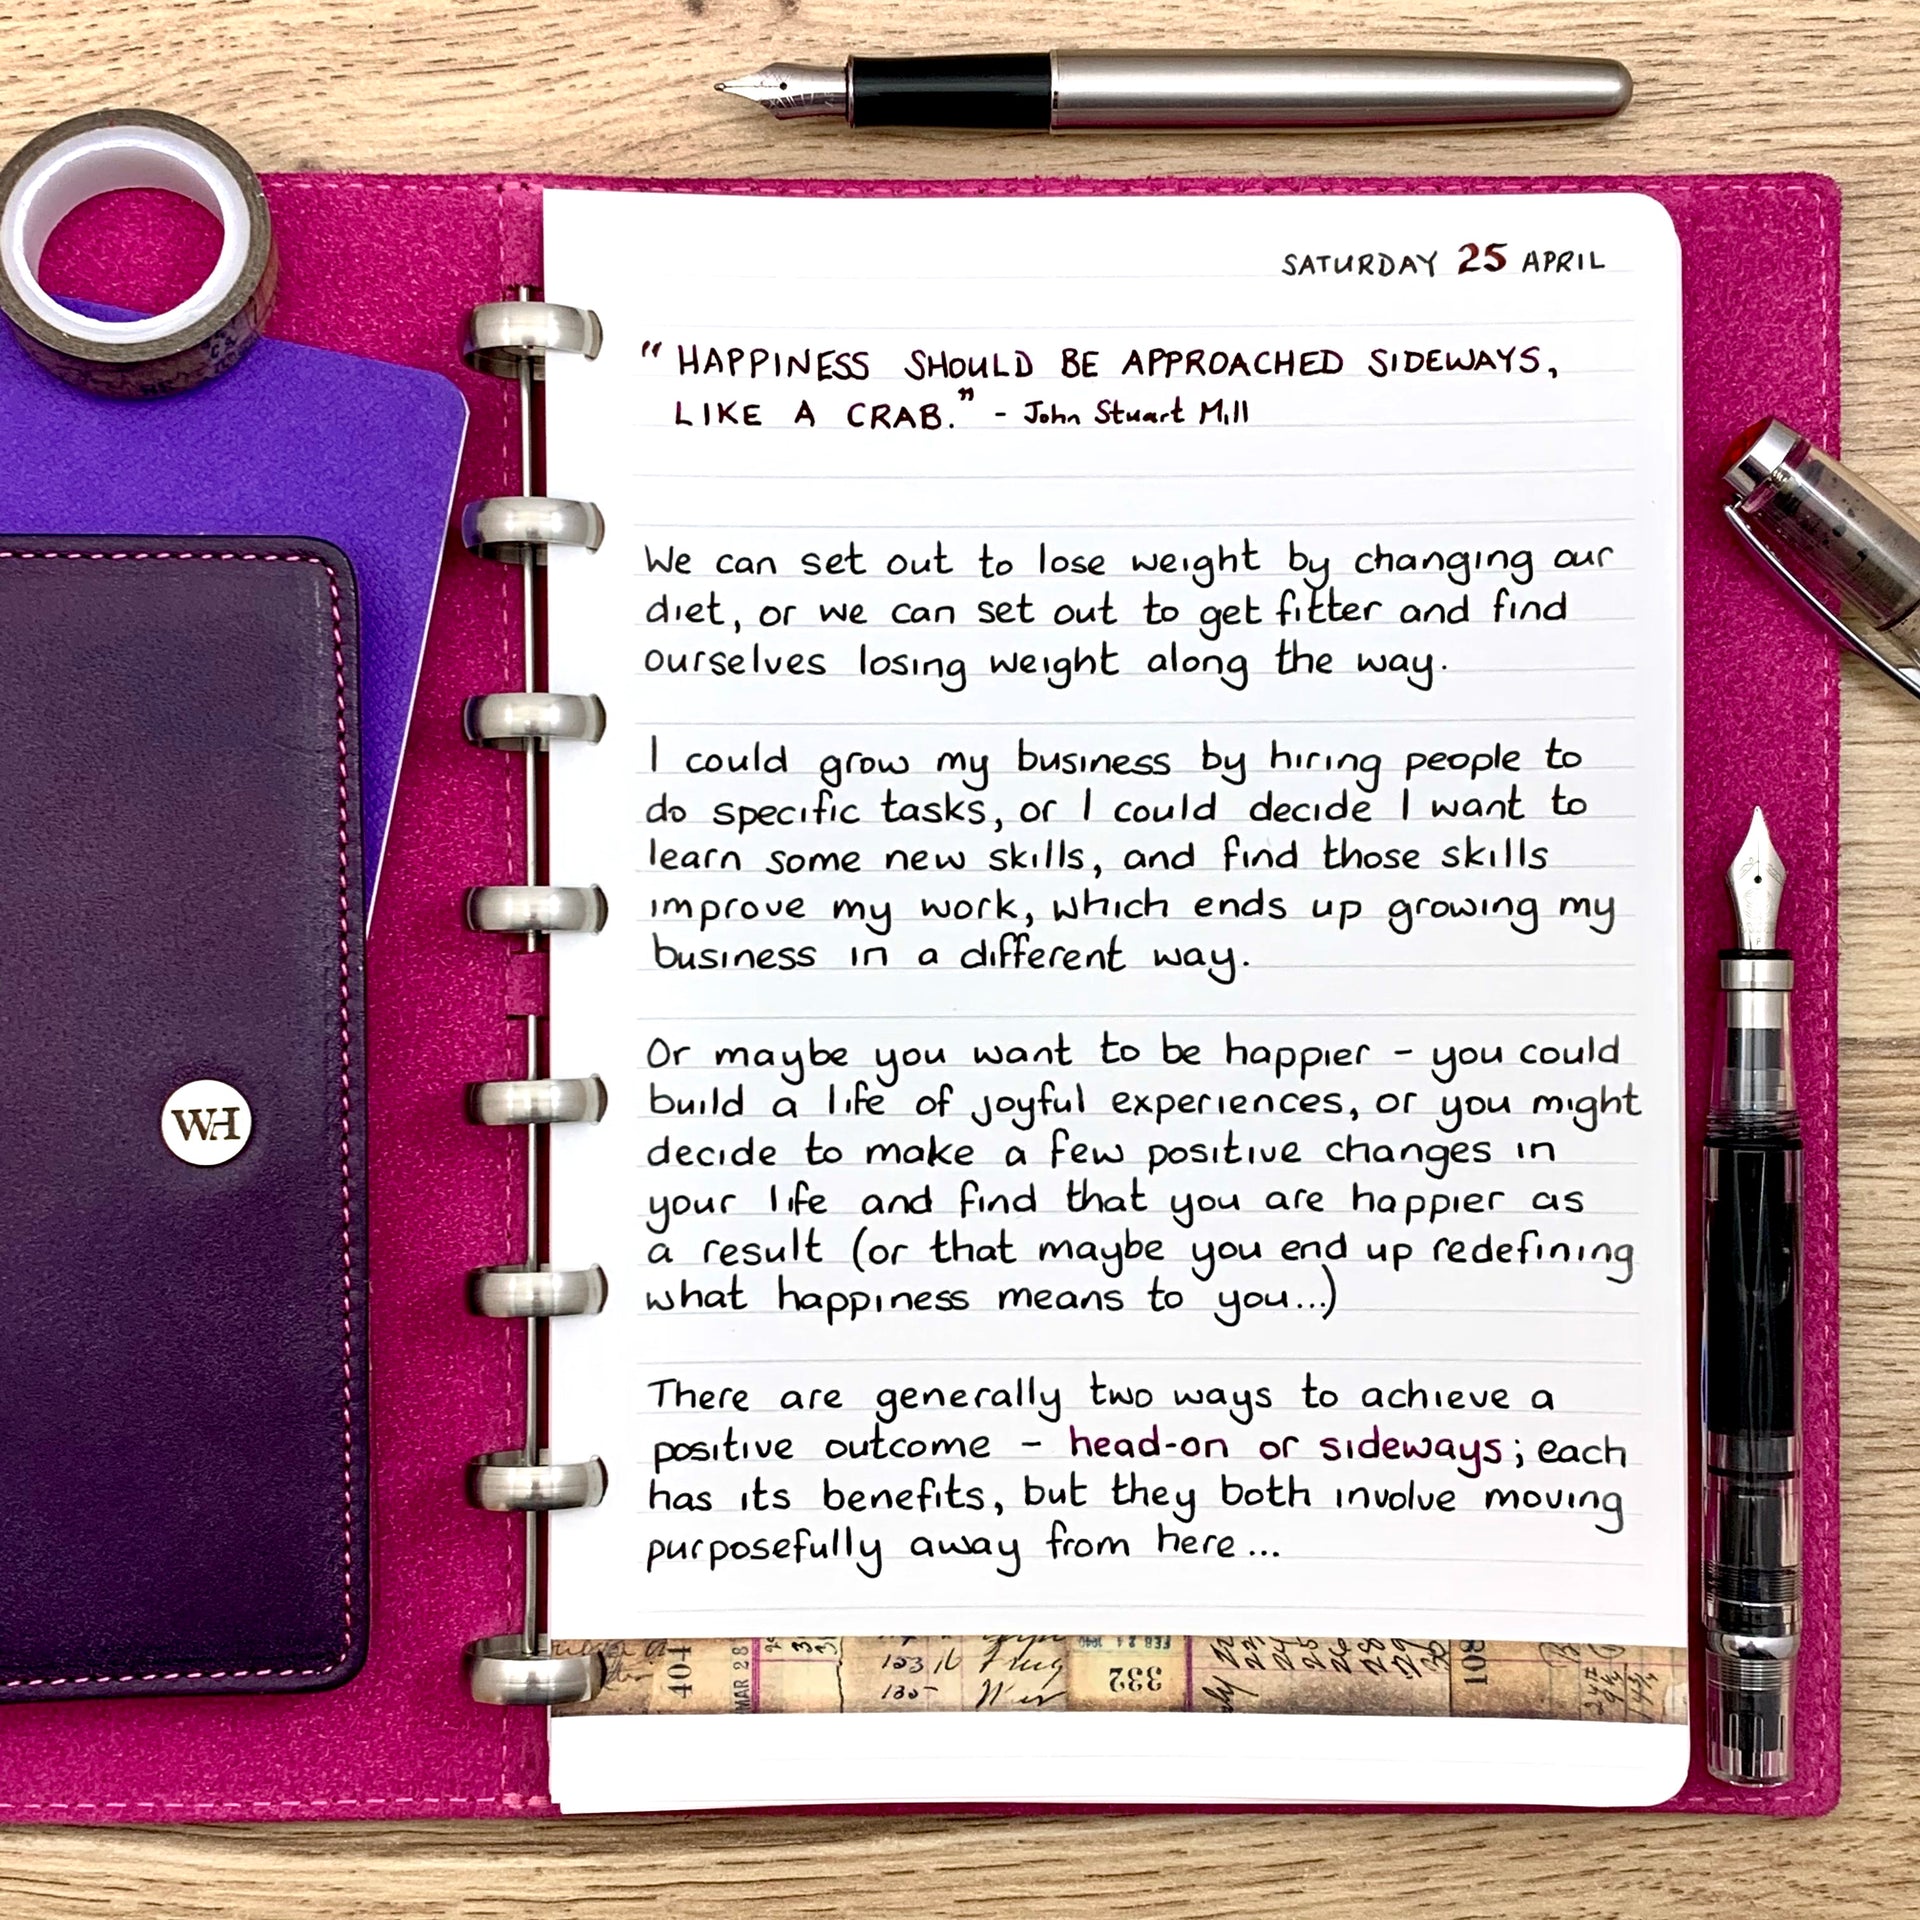 SATURDAY 25 APRIL
"HAPPINESS SHOULD BE APPROACHED SIDEWAYS,
LIKE A CRAB." - John Stuart Mill
We can set out to lose weight by changing our
diet, or we can set out to get fitter and find
ourselves losing weight along the way.
I could grow my business by hiring people to
do specific tasks, or I could decide I want to
learn some new skills, and find those skills
improve my work, which ends up growing my
business in a different way.
Or maybe you want to be happier - you could
build a life of joyful experiences, or you might
decide to make a few positive changes in
your life and find that you are happier as
a result (or that maybe you end up redefining
what happiness means to you...)
There are generally two ways to achieve a
positive outcome - head-on or sideways; each
has its benefits, but they both involve moving
purposefully away from here...
WH
404
MAR 28
332
108